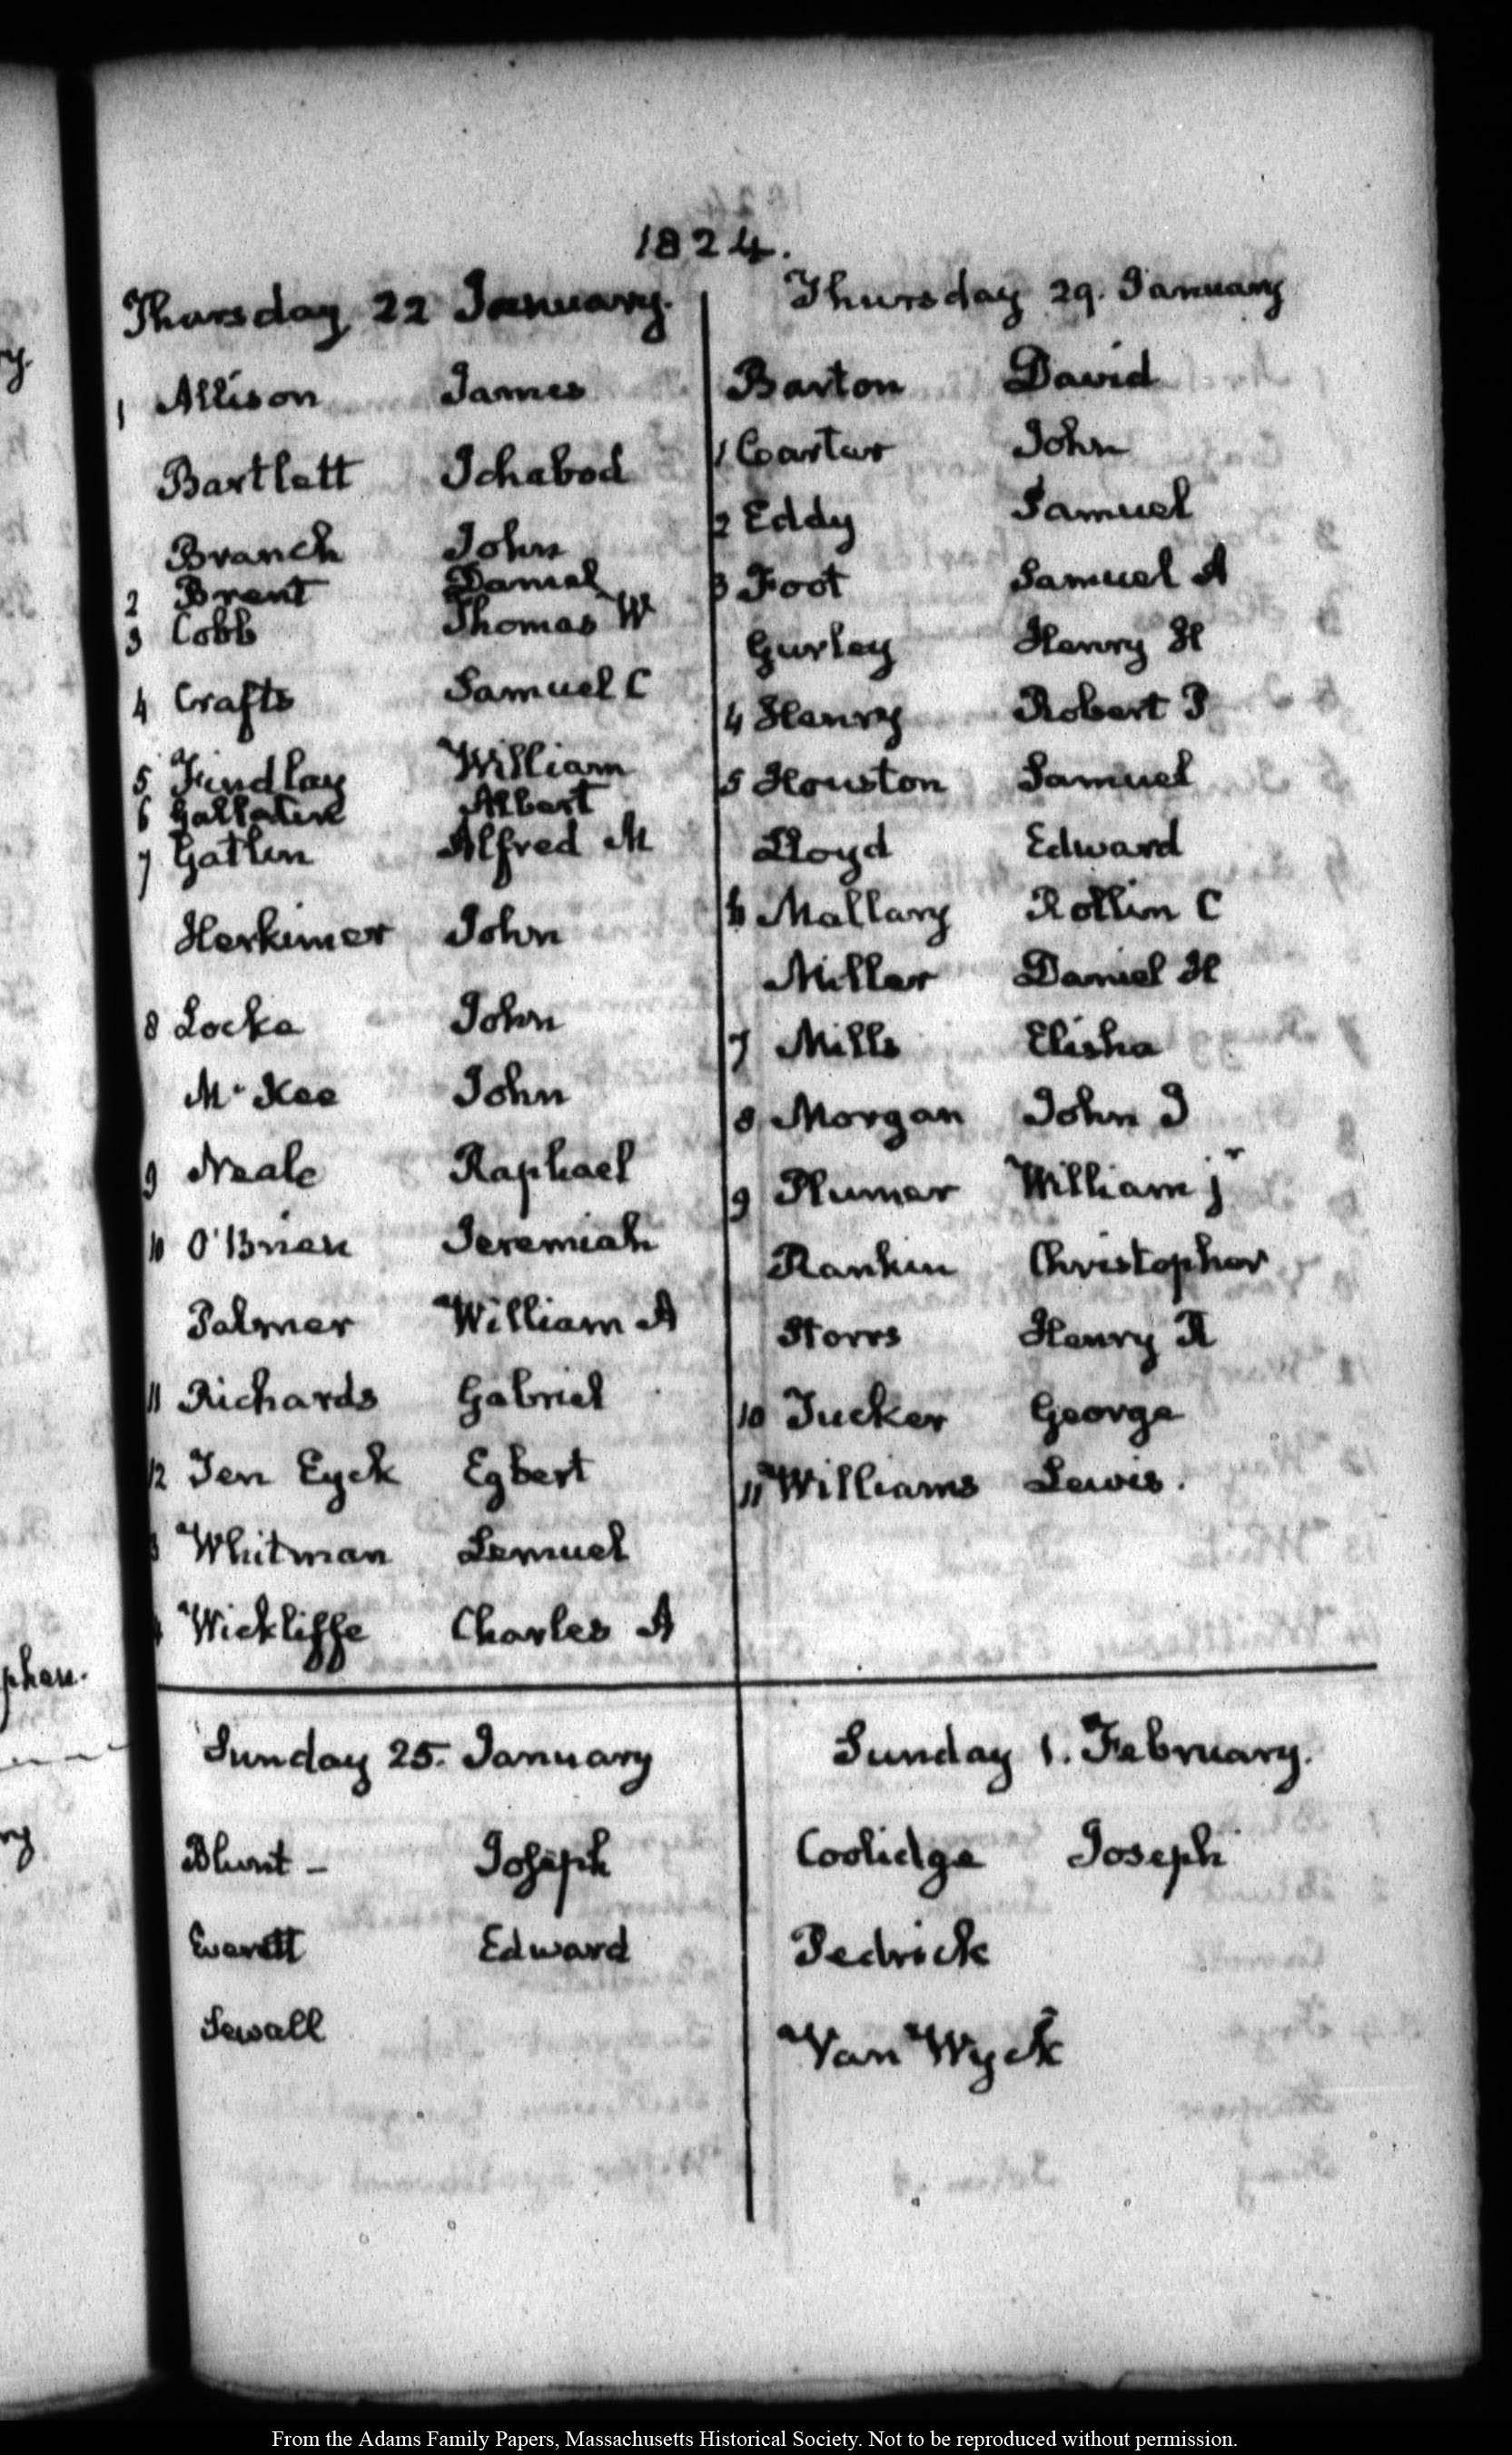 1824.
Thursday 22 January.
1 Allison James
Bartlett Ichabod
Branch John
2 Brent Daniel
3 Cobb Thomas W
4 Crafts Samuel C
5 Findlay William
6 Gallatin Albert
7 Gatlin Alfred M
Herkimer John
8 Locke John
Mc Kee John
9 Neale Raphael
10 O'Brien Jeremiah
Palmer William A
11 Richards Gabriel
12 Ten Eyck Egbert
3 Whitman Lemuel
Wickliffe Charles A
Thursday 29. January
Barton David
1 Carter John
2 Eddy Samuel
3 Foot Samuel A
Gurley Henry H
4 Henry Robert P
5 Houston Samuel
Lloyd Edward
6 Mallary Rollin C
Miller Daniel H
7 Mills Elisha
8 Morgan John J
9 Plumer William jr
Rankin Christopher
Storrs Henry R
10 Tucker George
11 Williams Lewis.
Sunday 25. January
Blunt - Joseph
Everett Edward
Sewall
Sunday 1. February.
Coolidge Joseph
Pedrick
Van Wyck
phen.
From the Adams Family Papers, Massachusetts Historical Society. Not to be reproduced without permission.